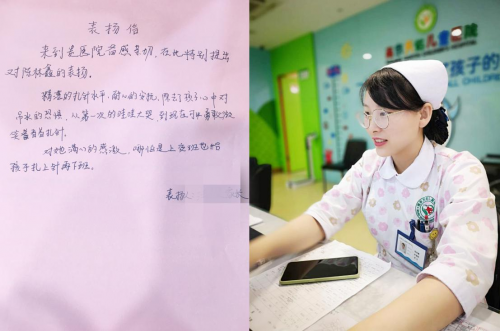 表扬信
来到贵医院倍感亲切，在此特别提出
对陈林鑫的表扬。
精湛的扎针水平，耐心的安抚，除去了孩子心中对
吊水的恐惧，从第一次的哇哇大哭，到现在可以勇敢微
笑着看着扎针。
对她满心的感激，哪怕是上夜班也给
孩子扎上针再下班。
表扬人
儿童医院
孩子的